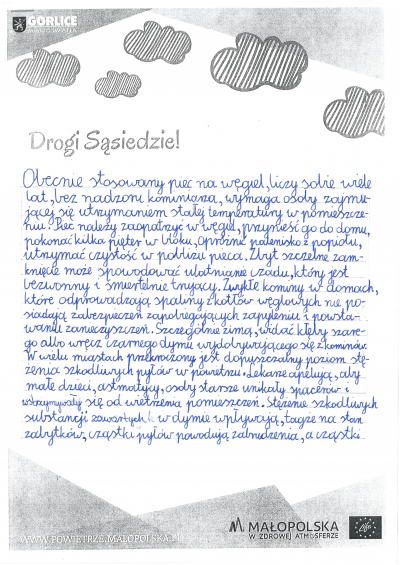 GORLICE
MIASTO ŚWIATŁA
Drogi Sąsiedzie!
Obecnie stosowany piec na węgiel, liczy sobie wiele
lat, bez nadzoru kominiarza, wymaga osoby zajmu-
jącej się utrzymaniem stałej temperatury w pomieszcze-
niu. Piec należy zaopatrzyć w węgiel, przynieść go do domu,
pokonać kilka pięter w bloku, opróżnić palenisko z popiołu,
utrzymać czystość w pobliżu pieca. Zbyt szczelne zam-
knięcie może spowodować ulatnianie czadu, który jest
bezwonny i śmiertelnie trujący. Zwykłe kominy w domach,
które odprowadzają spaliny z kotłów węglowych nie po-
siadają zabezpieczeń zapobiegających zapyleniu i powsta-
waniu zanieczyszczeń. Szczególnie zimą, widać kłęby szare-
go albo wręcz czarnego dymu wydobywającego się z kominów.
W wielu miastach przekroczony jest dopuszczalny poziom stę-
żenia szkodliwych pyłów w powietrzu. Lekarze apelują, aby
małe dzieci, astmatycy, osoby starsze unikały spacerów i
wstrzymywały się od wietrzenia pomieszczeń. Stężenie szkodliwych
substancji zawartych w dymie wpływają, także na stan
zabytków, cząstki pyłów powodują zabrudzenia, a cząstki
WWW.POWIETRZE.MALOPOLSKA.PL
MAŁOPOLSKA
W ZDROWEJ ATMOSFERZE
Life